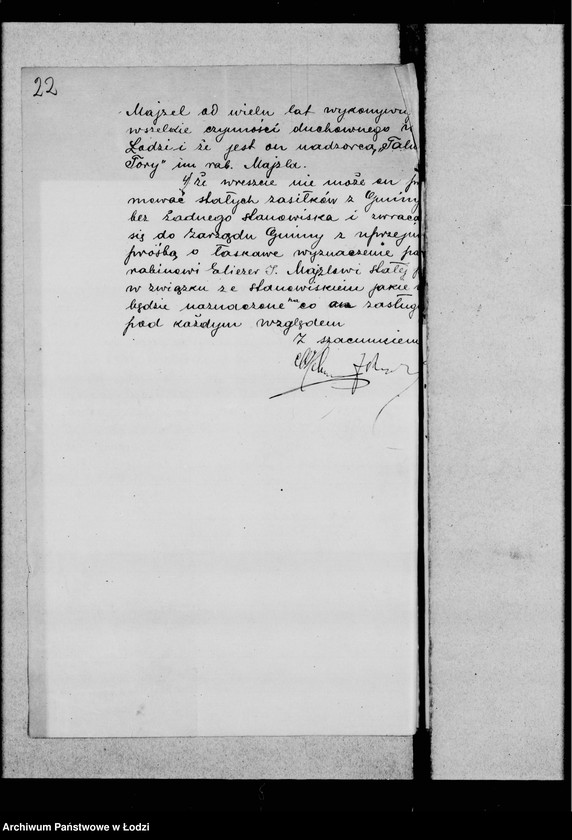 22
Majzel od wielu lat wykonywu
wszelkie czynności duchownego w
Łodzi i że jest on nadzorcą „Talm
Tory" im rab. Majzla.
4/ Że wreszcie nie może on
mować stałych zasiłków z Gminy
bez żadnego stanowiska i zwraca
się do Zarządu Gminy z uprzejm
prośbą o łaskawe wyznaczenie
rabinowi Eliezer S. Majzlowi stałej
w związku ze stanowiskiem jakie
będzie naznaczone na co zasług
pod każdym względem
Z szacunkiem
Archiwum Państwowe w Łodzi